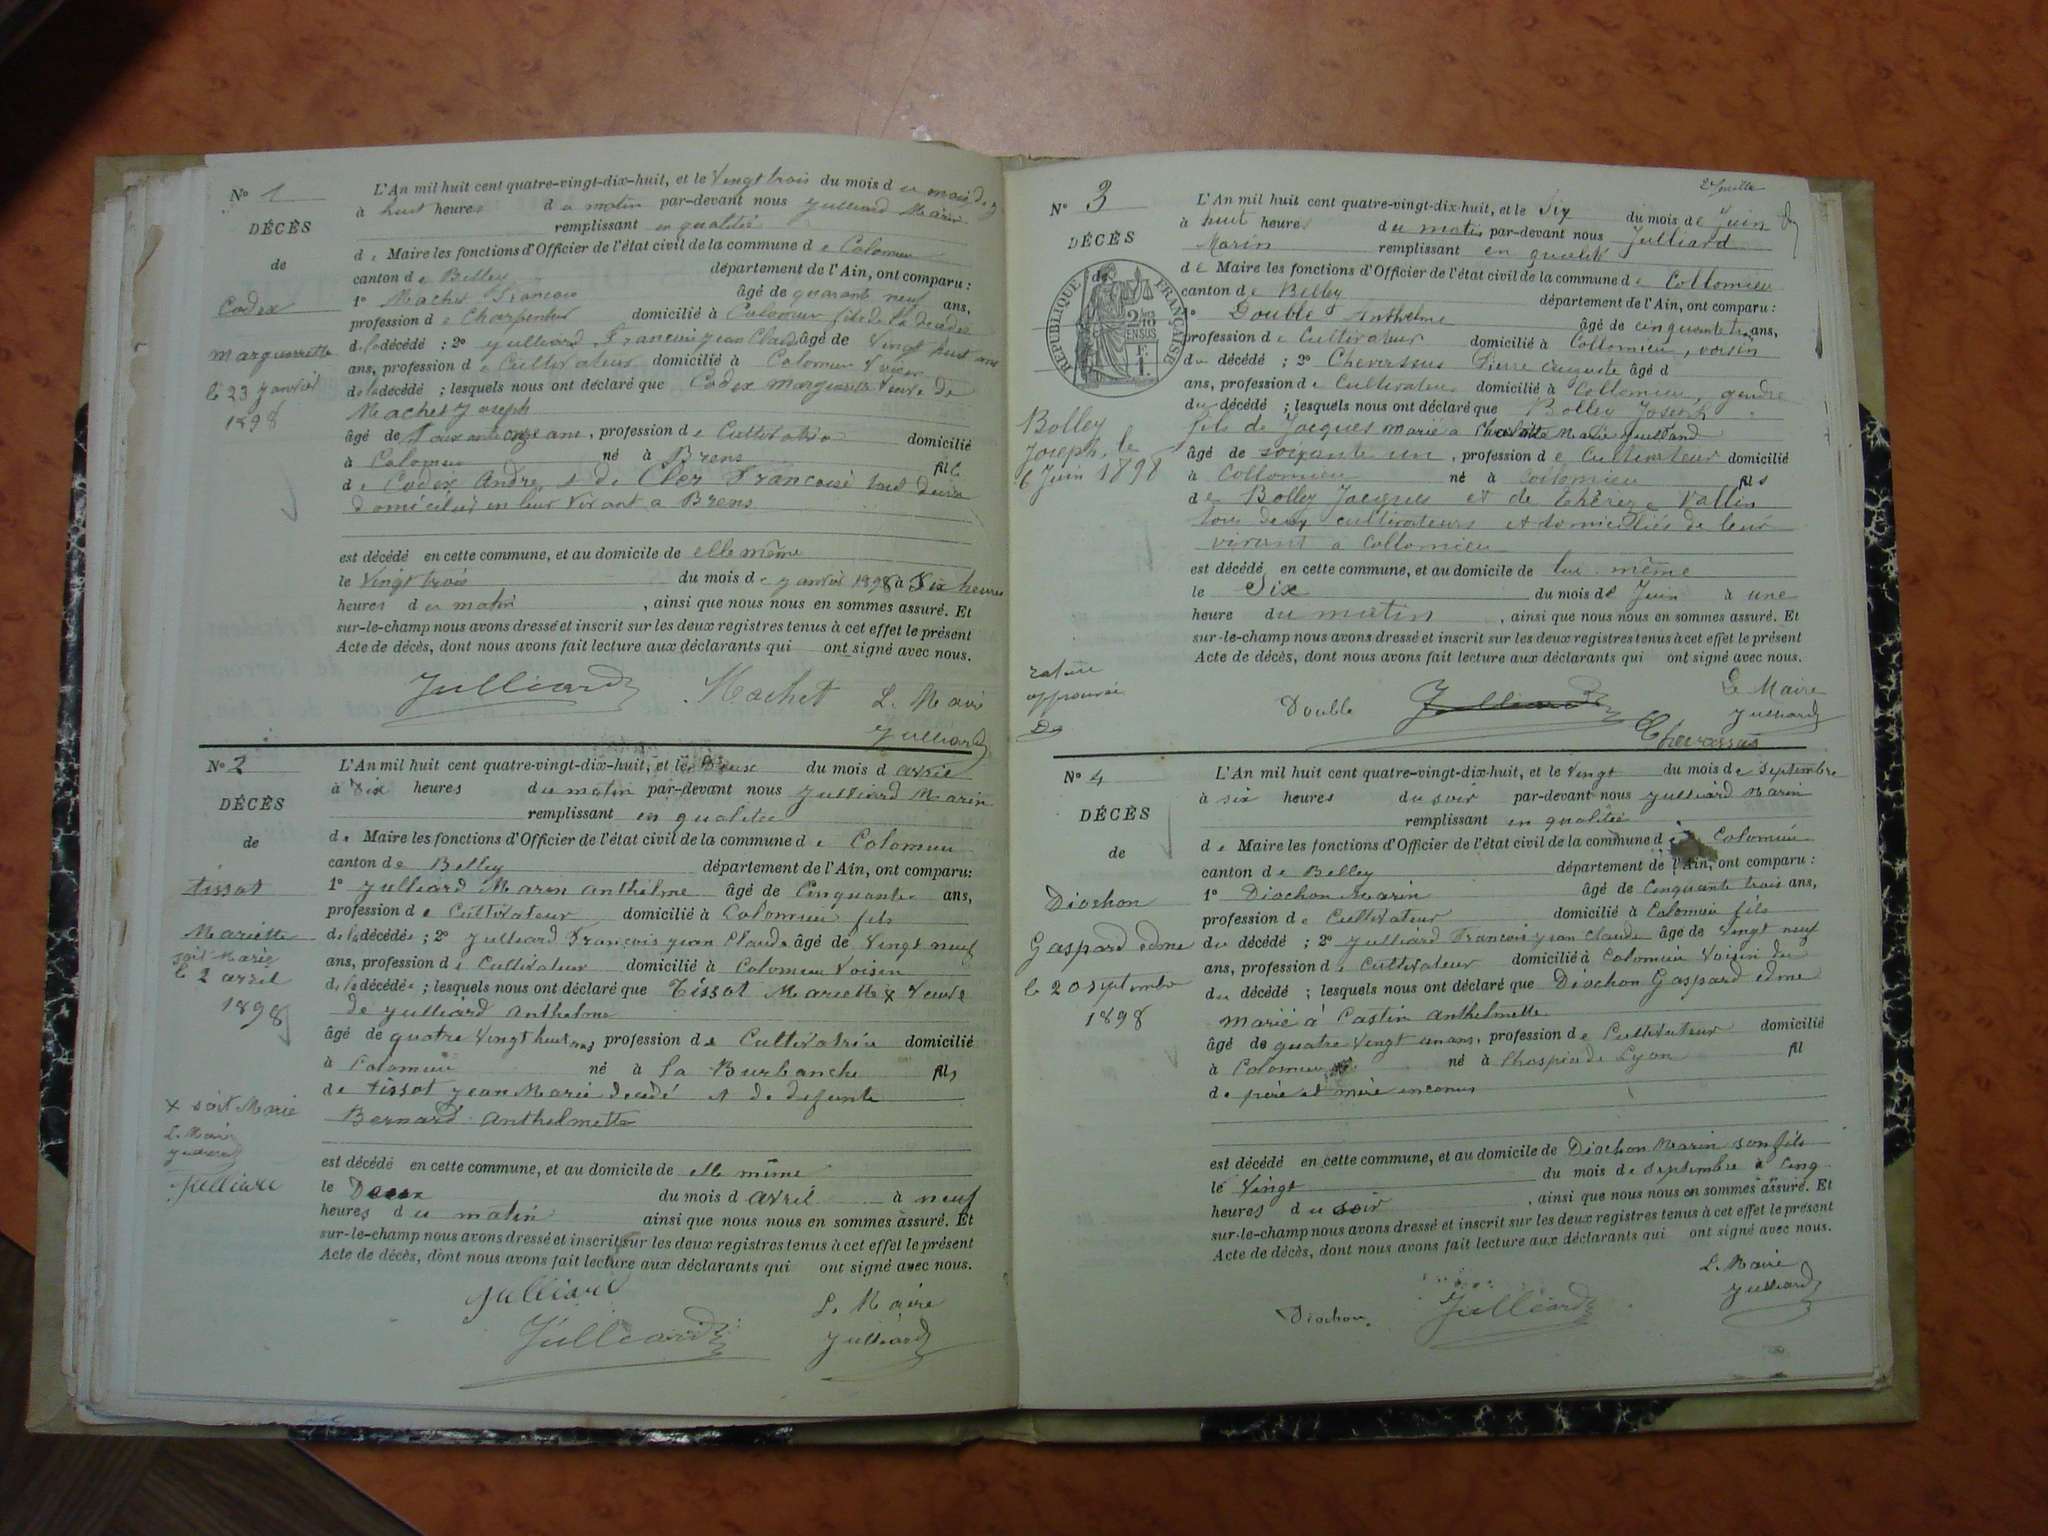 N° 1
DÉCÈS
de
Codex
Marguerite
le 23 Janvier
1898
L'An mil huit cent quatre-vingt-dix-huit, et le Vingt trois du mois du mois de
à huit heures du matin par-devant nous Julliard Marin
remplissant en qualitée
de Maire les fonctions d'Officier de l'état civil de la commune de Colomieu
canton de Belley département de l'Ain, ont comparu :
1° Machet Francois âgé de quarante neuf ans,
profession de Charpentier domicilié à Colomieu fils de la décédée
de la décédé ; 2° Julliard Francois jean Claude âgé de Vingt huit ans
ans, profession de Cultivateur domicilié à Colomieu Voisin
de la décédé ; lesquels nous ont déclaré que Codex Marguerite Veuve de
Machet Joseph
âgé de Soixante onze ans, profession de Cultivatrice domicilié
à Colomieu né à Brens fille
de Codex Andre et de Cler Francoise tous deux
domiciliés en leur Vivant a Brens
est décédé en cette commune, et au domicile de elle même
le Vingt trois du mois de Janvier 1898 à Six heures
heures du matin , ainsi que nous nous en sommes assuré. Et
sur-le-champ nous avons dressé et inscrit sur les deux registres tenus à cet effet le présent
Acte de décès, dont nous avons fait lecture aux déclarants qui ont signé avec nous.
Julliard Machet L. Maire
Julliard
N° 2
DÉCÈS
de
Tissot
Mariette
soit Marie
le 2 avril
1898
x soit Marie
L. Maire
Julliard
Julliard
L'An mil huit cent quatre-vingt-dix-huit, et le Deux du mois d avril
à Dix heures du matin par-devant nous Julliard Marin
remplissant en qualitée
de Maire les fonctions d'Officier de l'état civil de la commune de Colomieu
canton de Belley département de l'Ain, ont comparu :
1° Julliard Marin anthelme âgé de Cinquante ans,
profession de Cultivateur domicilié à Colomieu fils
de la décédée ; 2° Julliard François jean Claude âgé de Vingt neuf
ans, profession de Cultivateur domicilié à Colomieu Voisin
de la décédée ; lesquels nous ont déclaré que Tissot Mariette x Veuve
de Julliard anthelme
âgé de quatre Vingt huit ans profession de Cultivatrice domicilié
à Colomieu né à la Burbanche fille
de Tissot jean Marie décédé et de defunte
Bernard Anthelmette
est décédé en cette commune, et au domicile de elle même
le Deux du mois d avril à neuf
heures du matin ainsi que nous nous en sommes assuré. Et
sur-le-champ nous avons dressé et inscrit sur les deux registres tenus à cet effet le présent
Acte de décès, dont nous avons fait lecture aux déclarants qui ont signé avec nous.
Julliard L. Maire
Julliard Julliard
2e feuille
N° 3
DÉCÈS
de
RÉPUBLIQUE FRANÇAISE
Bolley
Joseph, le
6 Juin 1898
rature
approuvée
L'An mil huit cent quatre-vingt-dix-huit, et le Six du mois de Juin
à huit heures du matin par-devant nous Julliard
Marin remplissant en qualité
de Maire les fonctions d'Officier de l'état civil de la commune de Collomieu
canton de Belley département de l'Ain, ont comparu :
1° Double Anthelme âgé de cinquante ans,
profession de Cultivateur domicilié à Collomieu, voisin
du décédé ; 2° Chevassus Pierre auguste âgé d
ans, profession de Cultivateur domicilié à Collomieu, gendre
du décédé ; lesquels nous ont déclaré que Bolley Joseph
fils de Jacques marié a Charlotte Marie Julliand
âgé de soixante un , profession de Cultivateur domicilié
à Collomieu né à Collomieu fils
de Bolley Jacques et de thérèze Vallin
tous deux cultivateurs et domiciliés de leur
vivant a Collomieu
est décédé en cette commune, et au domicile de lui même
le Six du mois de Juin à une
heure du matin , ainsi que nous nous en sommes assuré. Et
sur-le-champ nous avons dressé et inscrit sur les deux registres tenus à cet effet le présent
Acte de décès, dont nous avons fait lecture aux déclarants qui ont signé avec nous.
Double Julliard Le Maire
Julliard
Chevassus
N° 4
DÉCÈS
de
Diochon
Gaspard edme
le 20 septembre
1898
L'An mil huit cent quatre-vingt-dix-huit, et le Vingt du mois de septembre
à six heures du soir par-devant nous Julliard Marin
remplissant en qualitée
de Maire les fonctions d'Officier de l'état civil de la commune d Colomieu
canton de Belley département de l'Ain, ont comparu :
1° Diochon Marin âgé de Cinquante trois ans,
profession de Cultivateur domicilié à Colomieu fils
du décédé ; 2° Julliard Francois jean Claude âgé de Vingt neuf
ans, profession de Cultivateur domicilié à Colomieu Voisin du
du décédé ; lesquels nous ont déclaré que Diochon Gaspard edme
marié à Castin Anthelmette
âgé de quatre Vingt un ans, profession de Cultivateur domicilié
à Colomieu né à l'hospice de Lyon fil
de père et mère inconus
est décédé en cette commune, et au domicile de Diochon Marin son fils
le Vingt du mois de septembre à Cinq
heures du soir , ainsi que nous nous en sommes assuré. Et
sur-le-champ nous avons dressé et inscrit sur les deux registres tenus à cet effet le présent
Acte de décès, dont nous avons fait lecture aux déclarants qui ont signé avec nous.
L. Maire
Diochon Julliard Julliard